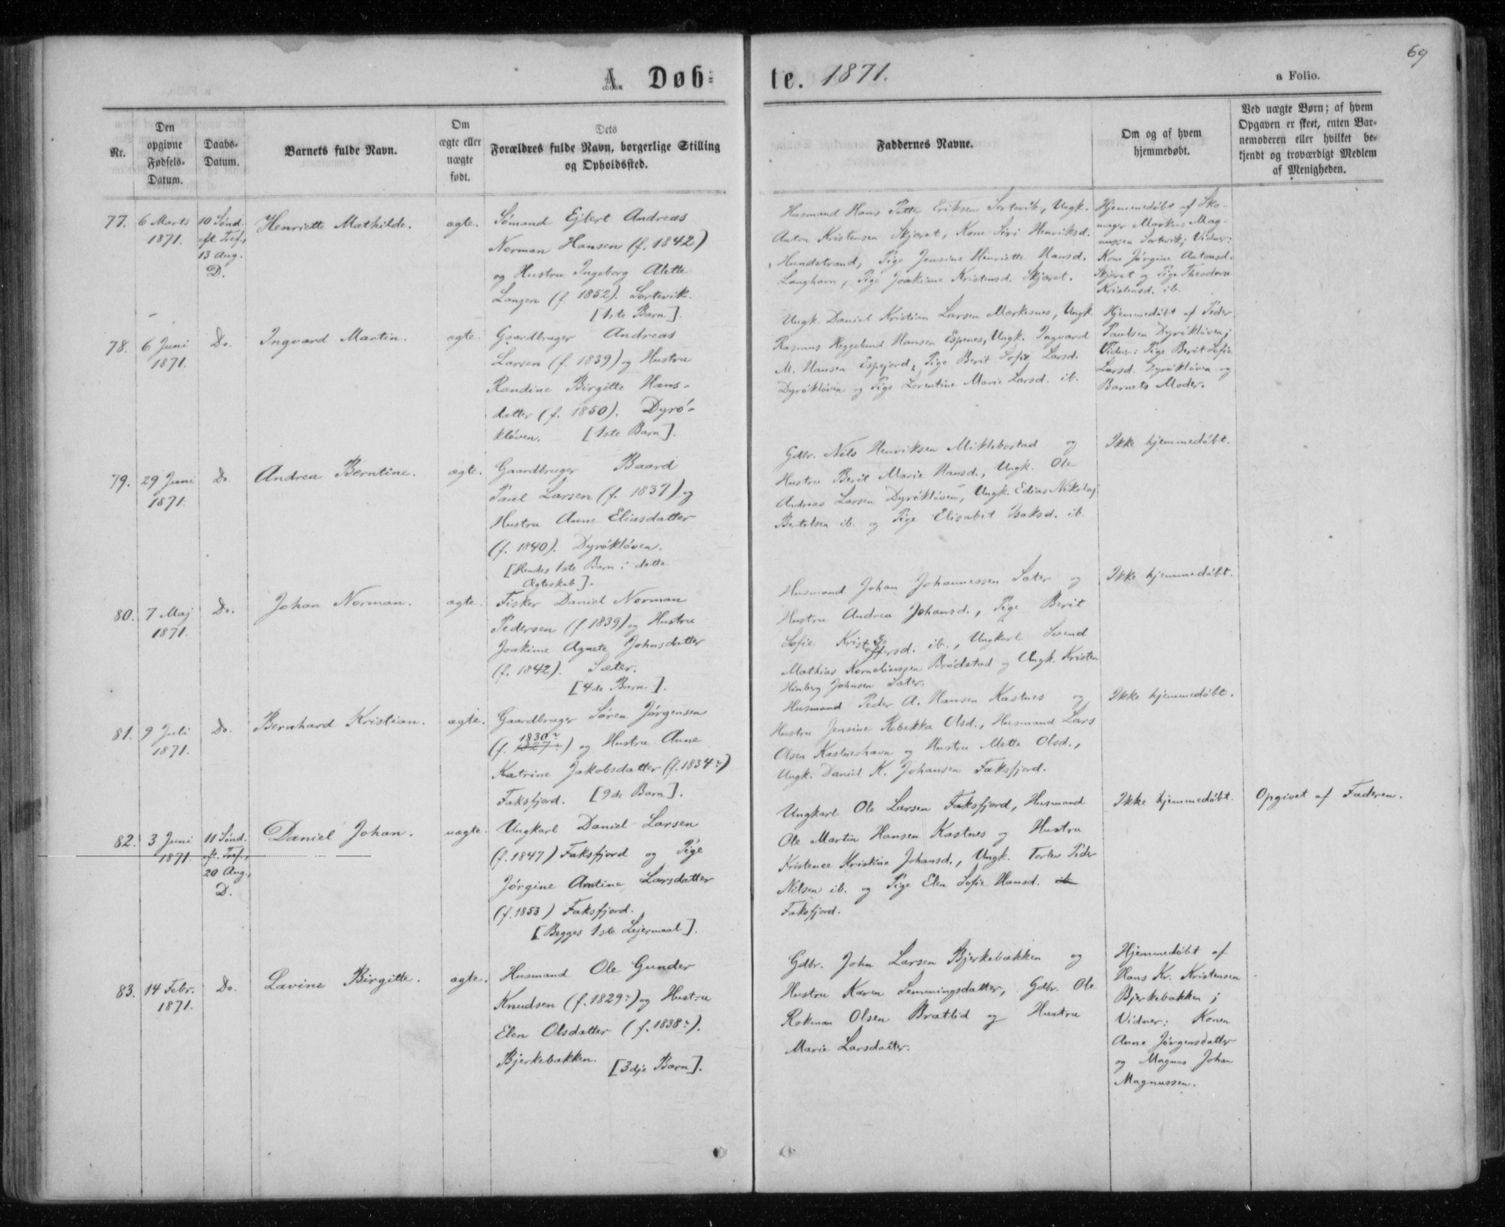 69
A Døb-
te. 1871.
a Folio.
Nr.
Den
opgivne
Fødsels-
Datum.
Daabs-
Datum.
Barnets fulde Navn.
Om
ægte eller
uægte
født.
Dets
Forældres fulde Navn, borgerlige Stilling
og Opholdssted.
Faddernes Navne.
Om og af hvem
hjemmedøbt.
Ved uægte Børn; af hvem
Opgaven er skeet, enten Bar-
nemoderen eller hvilket be-
kjendt og troværdigt Medlem
af Menigheden.
77.
6 Marts
1871.
10 Sønd.
eft. Tref.,
13 Aug.
D.
Henriette Mathilde.
ægte.
Sømand Ejlert Andreas
Norman Hansen (f. 1842)
og Hustru Ingeborg Alette
(f. 1852). Sørtevik.
[1ste Barn].
Husmand Hans Peter Eriksen Sørtevik, Ungk.
Anton Kristensen Skjæret, Kone Siri Henriksd.
Hundstrand, Pige Jensine Henriette Hansd.
Langhavn, Pige Joakime Kristensd. Skjæret.
Hjemmedøbt af Sko-
mager Markus Mag-
nussen Sørtevik; Vidner:
Kone Jørgine Antonsd.
Skjæret og Pige Theodora
Kristensd. ib.
78.
6 Juni
1871.
Do.
Ingvard Martin.
ægte.
Gaardbruger Andreas
Larsen (f. 1839) og Hustru
Randine Birgitte Hans-
datter (f. 1850). Dyrø-
kløven. [1ste Barn].
Ungk. Daniel Kristian Larsen Markenes, Ungk.
Rasmus Heggelund Hansen Espenes, Ungk. Ingvard
M. Hansen Espejord, Pige Berit Sofie Larsd.
Dyrøkløven og Pige Lorentine Marie Larsd. ib.
Hjemmedøbt af Peder
Paulsen Dyrøkløven;
Vidner: Pige Berit Sofie
Larsd. Dyrøkløven og
Barnets Moder.
79.
29 Juni
1871.
Do
Andrea Berntine.
ægte.
Gaardbruger Baard
Paul Larsen (f. 1837) og
Hustru Anne Eliasdatter
(f. 1840). Dyrøkløven.
[Hendes 1ste Barn i dette
Ægteskab].
Gdbr. Nels Henriksen Miklebostad og
Hustru Berit Marie Hansd., Ungk. Ole
Andreas Larsen Dyrøkløven, Ungk. Edias Nikolaj
Bertelsen ib. og Pige Elisabet Isaksd. ib.
Ikke hjemmedøbt.
80.
7 Maj
1871.
Do.
Johan Norman.
ægte.
Fisker Daniel Norman
Pedersen (f. 1839) og Hustru
Joakime Agnete Johnsdatter
(f. 1842). Sæter.
[4de Barn].
Husmand Johan Johannessen Sæter og
Hustru Andrea Johansd., Pige Berit
Sofie Kristoffersd. ib., Ungkarl Svend
Mathias Korneliussen Brødstad og Ungk. Kristen
Hinberg Johnsen Sæter.
Ikke hjemmedøbt.
81.
9 Juli
1871.
Do.
Bernhard Kristian.
ægte.
Gaardbruger Søren Jørgensen
1830
(f. 1827) og Hustru Anne
Katrine Jakobsdatter (f. 1834)
Faksfjord. [9de Barn].
Husmand Peder A. Hansen Kastnes og
Hustru Jensine Rebekka Olsd., Husmand Lars
Olsen Kastneshavn og Hustru Mette Olsd.,
Ungk. Daniel K. Johansen Faksfjord.
Ikke hjemmedøbt.
82.
3 Juni
1871.
11 Sønd.
eft. Tref.,
20 Aug.,
D.
Daniel Johan.
uægte.
Ungkarl Daniel Larsen
(f. 1847) Faksfjord og Pige
Jørgine Arntine Larsdatter
(f. 1853) Faksfjord.
[Begges 1ste Lejermaal].
Ungkarl Ole Larsen Faksfjord, Husmand
Ole Martin Hansen Kastnes og Hustru
Kristence Kristine Johansd., Ungk. Torlev Peder
Nilsen ib. og Pige Elen Sofie Hansd. ib
Faksfjord.
Ikke hjemmedøbt.
Opgivet af Faderen.
83.
14 Febr.
1871.
Do.
Lavine Birgitte.
ægte.
Husmand Ole Gunder
Knudsen (f. 1829) og Hustru
Elen Olsdatter (f. 1838).
Bjerkebakken. [3dje Barn].
Gdbr. John Larsen Bjerkebakken og
Hustru Karen Lemmingsdatter, Gdbr. Ole
Rokman Olsen Bratlid og Hustru
Marie Larsdatter.
Hjemmedøbt af
Hans Kr. Kristensen
Bjerkebakken;
Vidner: Konen
Anne Jørgensdatter
og Magnus Johan
Magnussen.